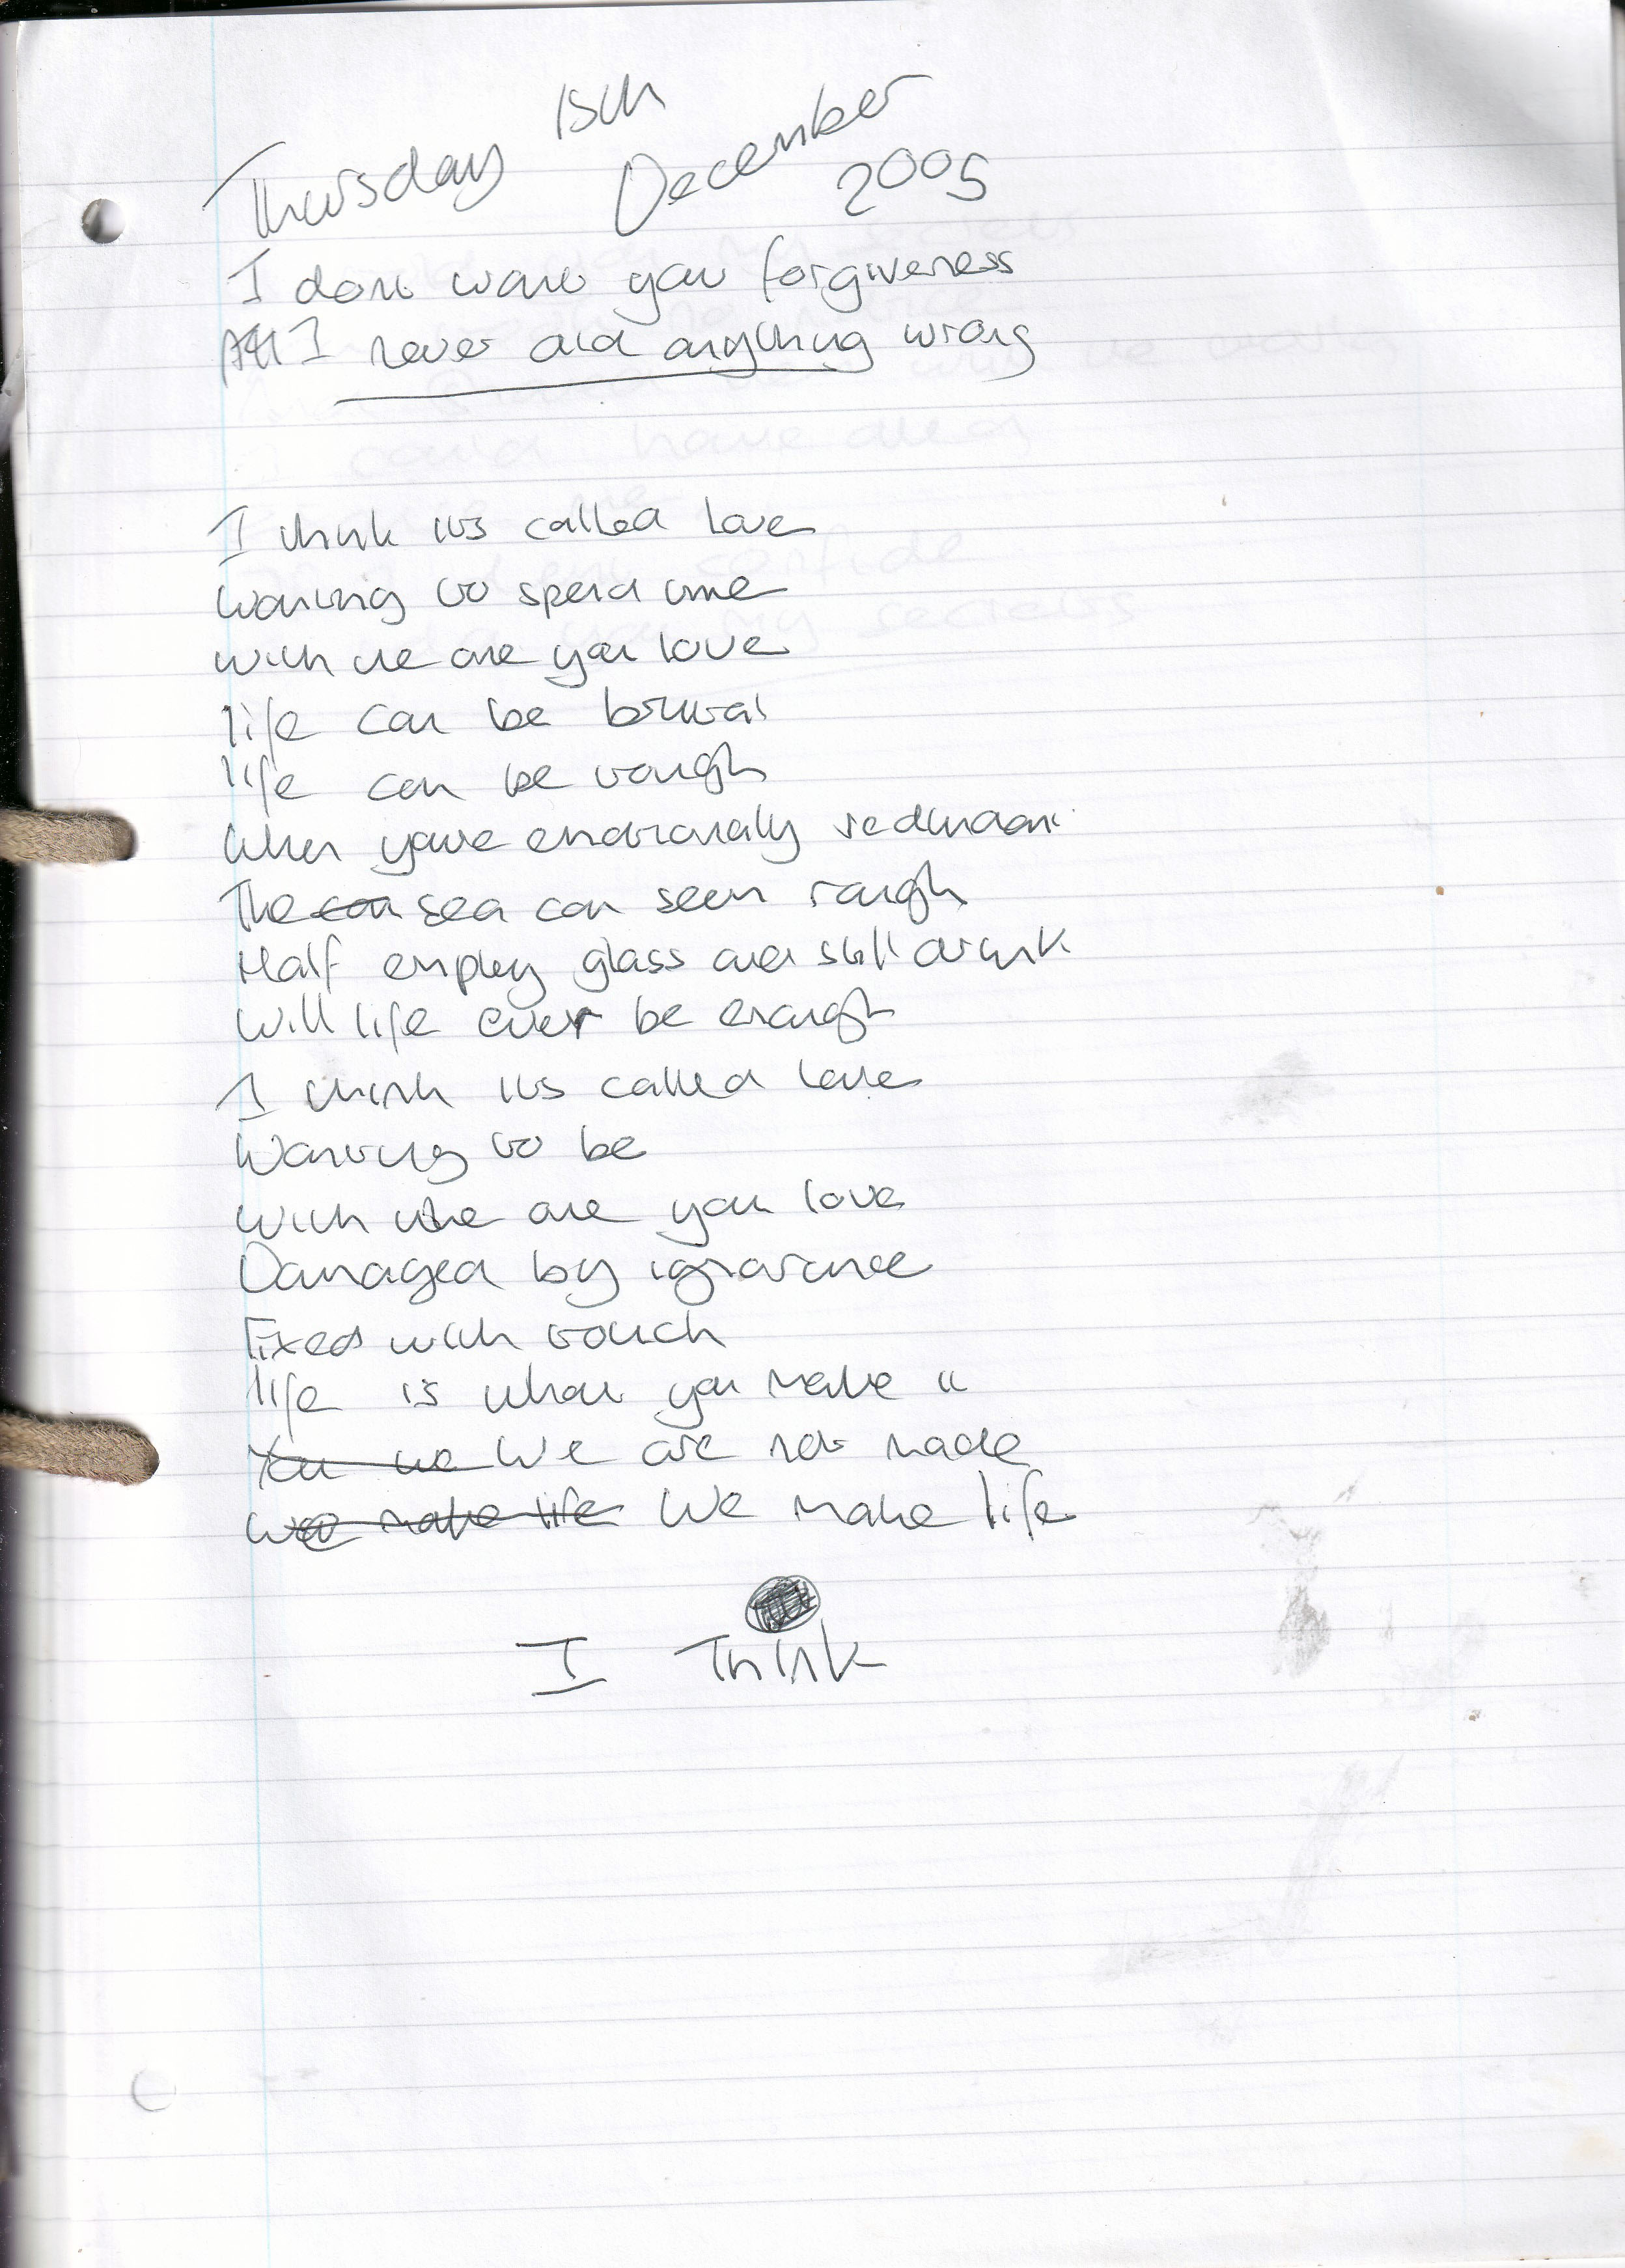 Thursday 15th December 2005
I dont want your forgiveness
I never did anything wrong
I think its called love
Wanting to spend time
with the one you love
life can be brutal
life can be tough
When youre emotionally redundant
The can sea can seem rough
Half empty glass and still drink
Will life ever be enough
I think its called love
Wanting to be
with the one you love
Damaged by ignorance
Fixed with touch
life is what you make it
You we We are not made
We make life We make life
I Think